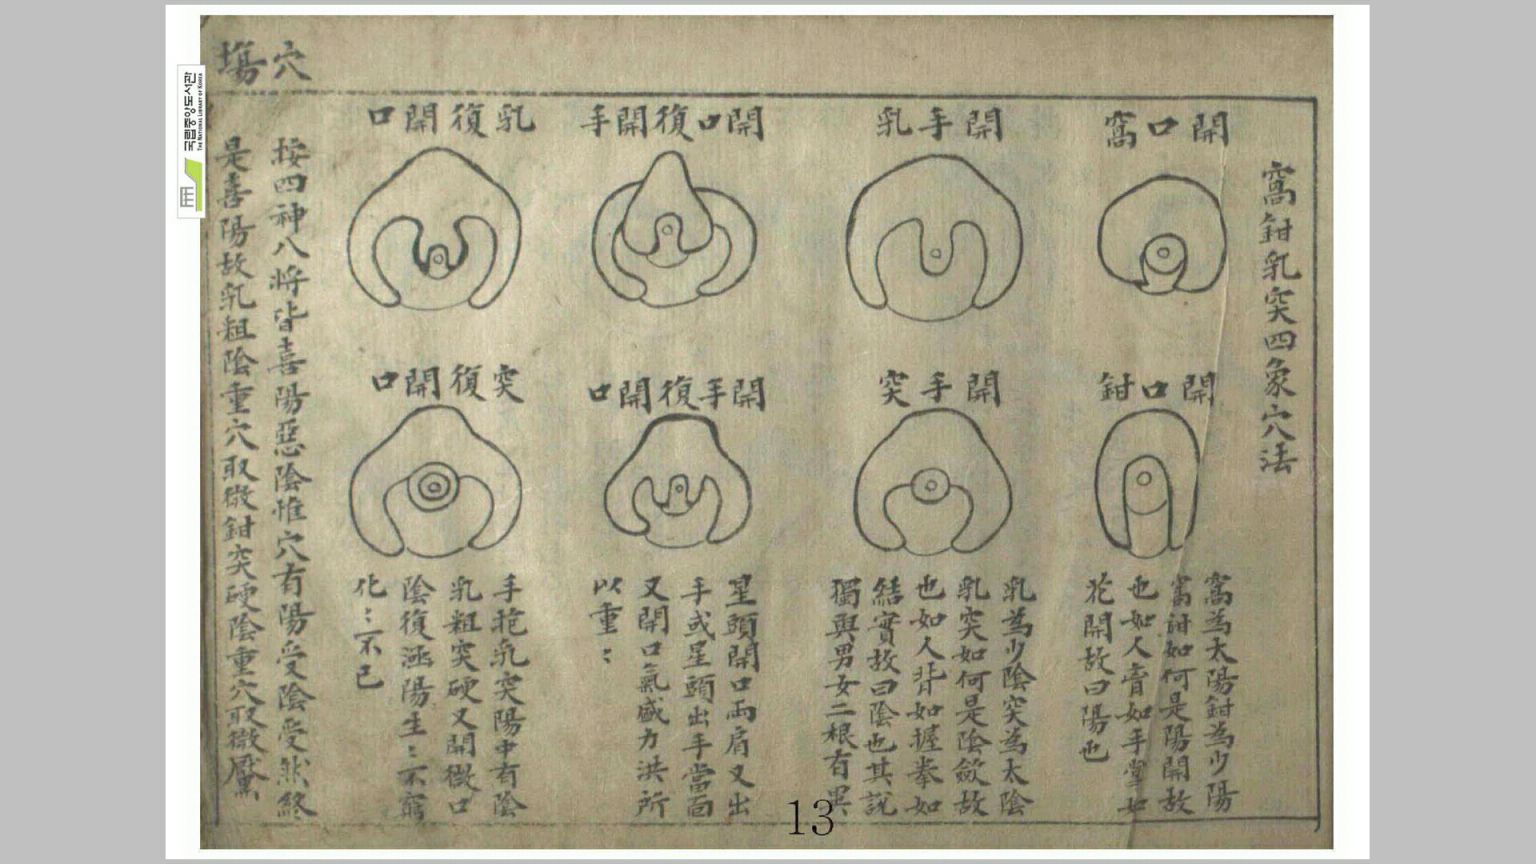 穴場
窩鉗乳突四象穴法
開口窩
開手乳
開口復開手
乳復開口
開口鉗
開手突
開手復開口
突復開口
窩為太陽鉗為少陽
窩鉗如何是陽開故
也如人膏如手掌如
花開故曰陽也
乳為少陰突為太陰
乳突如何是陰斂故
也如人背如握拳如
結實故曰陰也其說
獨與男女二根有異
星頭開口両肩又出
手或星頭出手當面
又開口氣盛力洪所
以重〻
手抱乳突陽中有陰
乳粗突硬又開微口
陰復涵陽生〻不窮
化〻不已
按四神八將皆喜陽惡陰惟穴有陽受陰受然終
是喜陽故乳粗陰重穴取微鉗突硬陰重穴取微
국립중앙도서관
THE NATIONAL LIBRARY OF KOREA
13